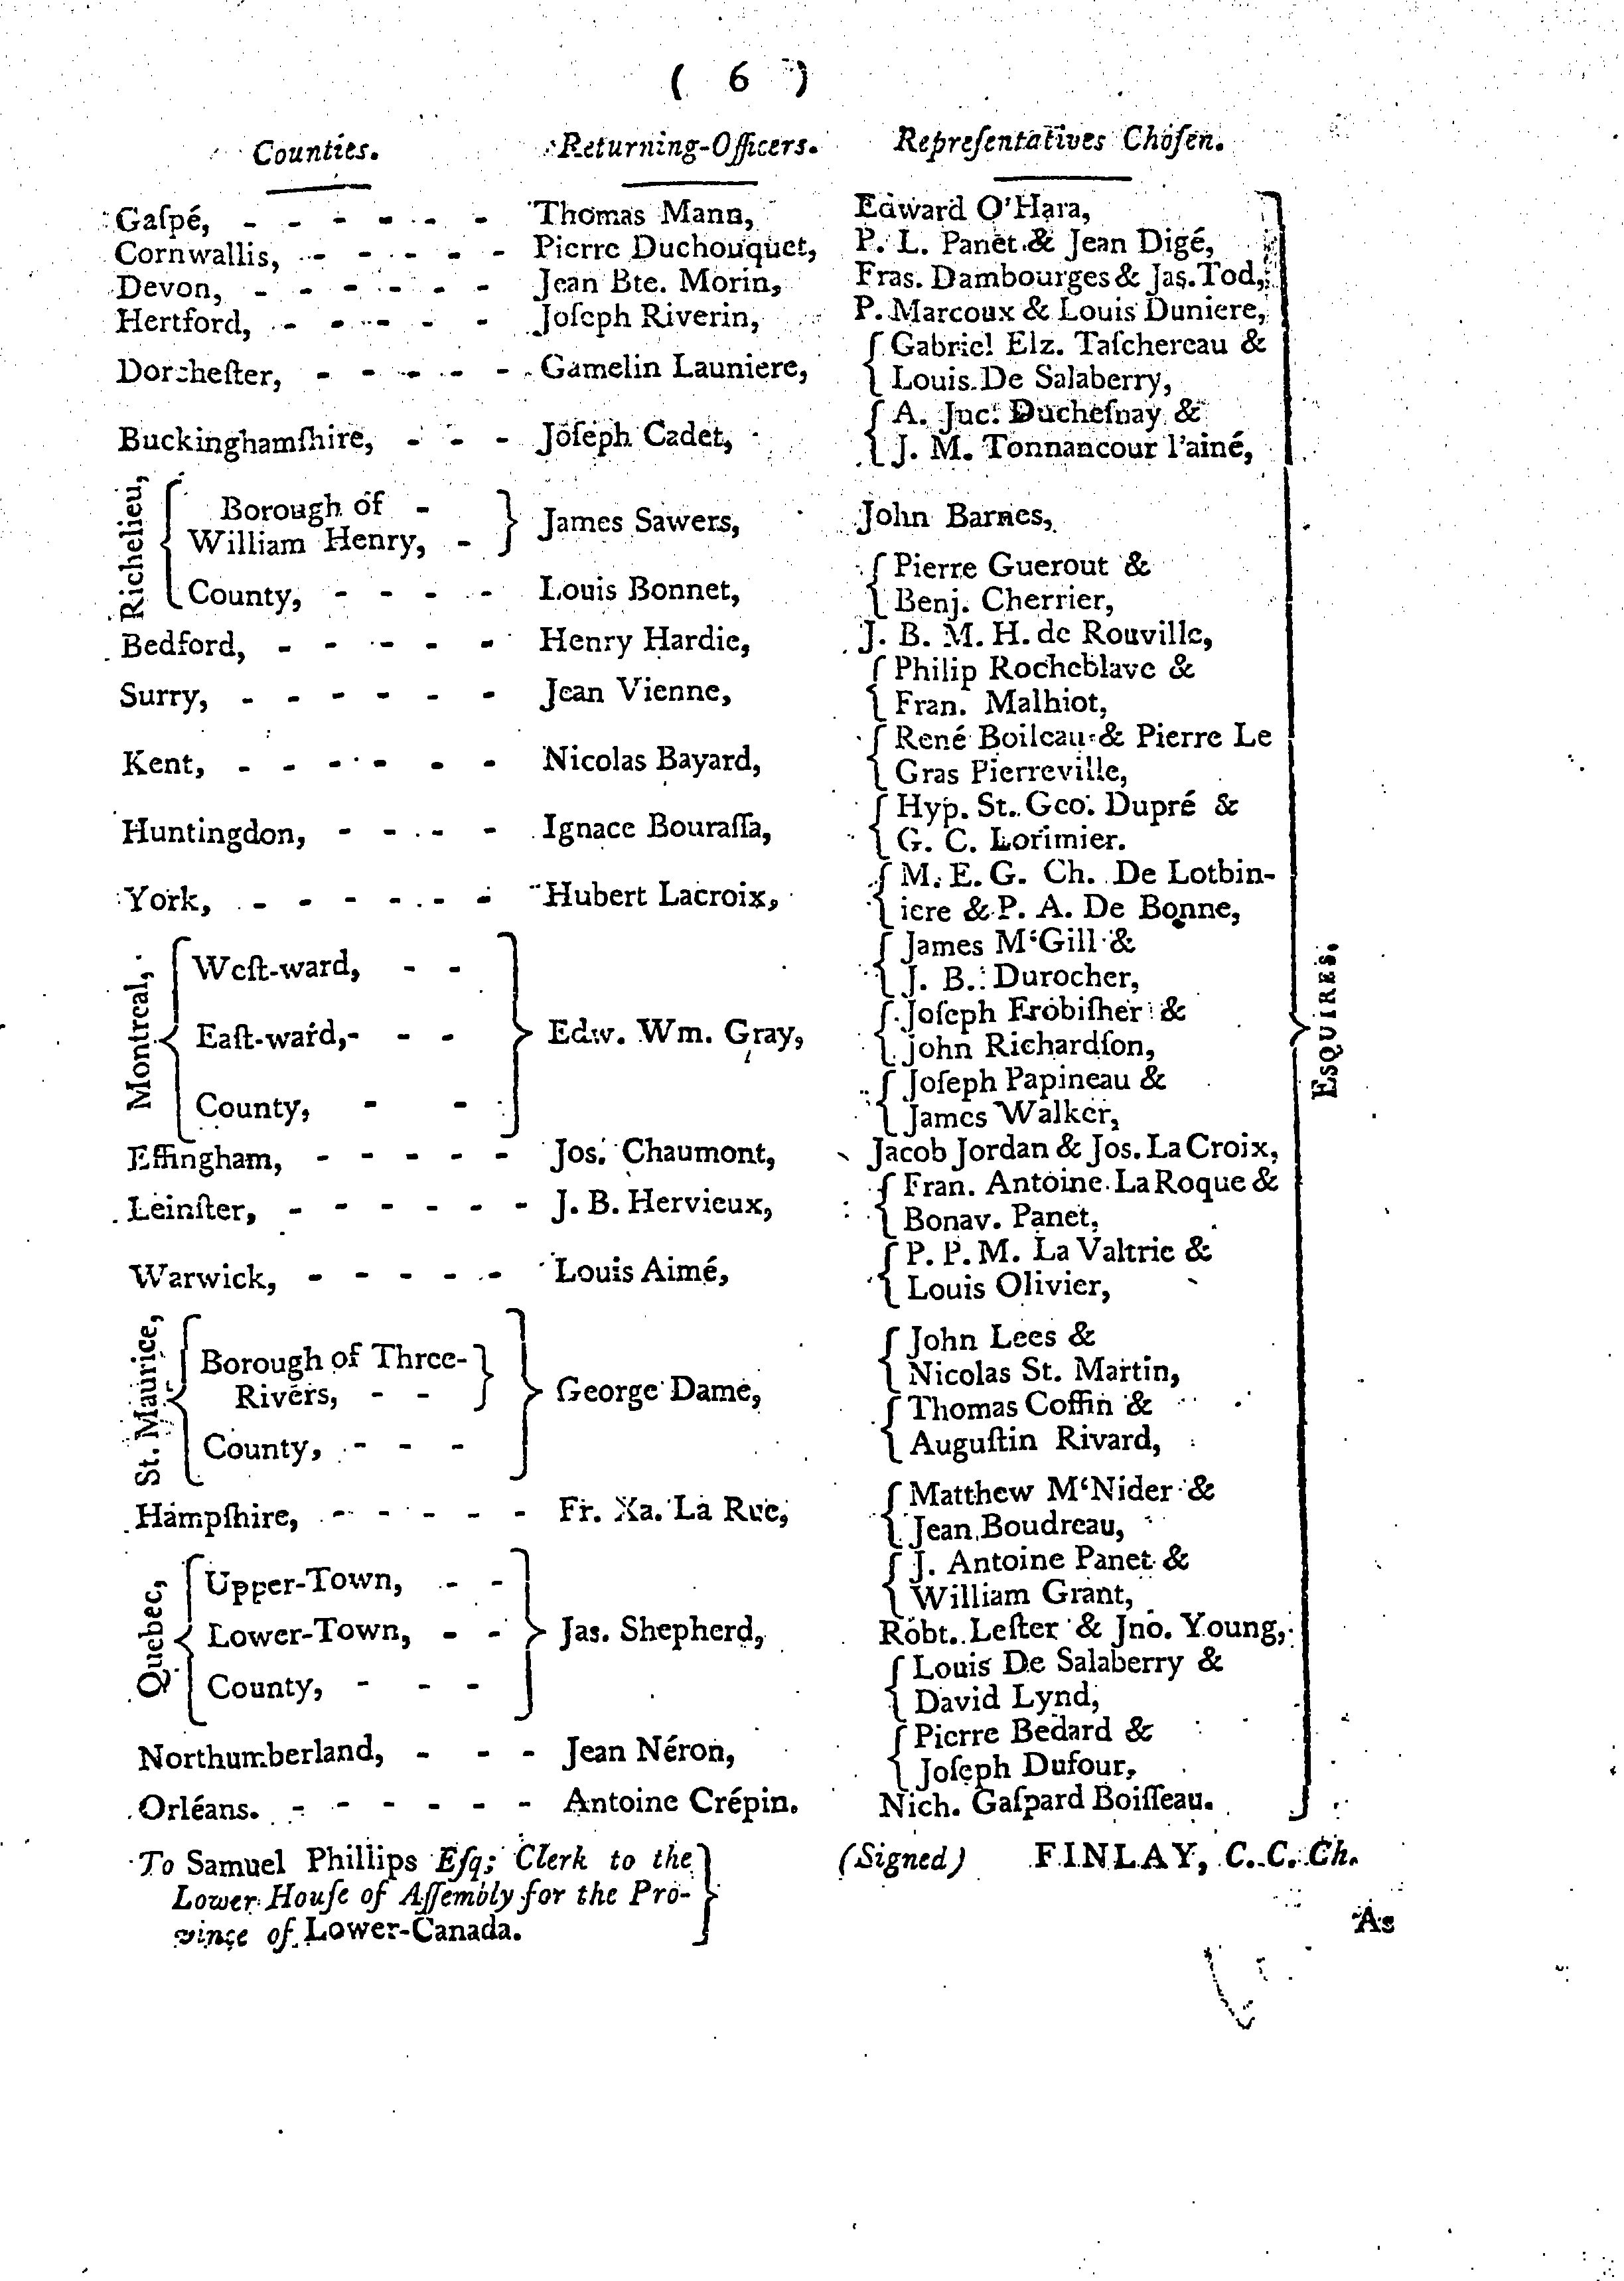 ( 6 )
Counties. Returning-Officers. Repreſentatives Choſen.
Gaſpé, - - - - - - Thomas Mann, Edward O'Hara,
Cornwallis, - - - - - Pierre Duchouquet, P. L. Panet & Jean Digé,
Devon, - - - - - - Jean Bte. Morin, Fras. Dambourges & Jas. Tod,
Hertford, - - - - - Joſeph Riverin, P. Marcoux & Louis Duniere,
Gabriel Elz. Taſchereau &
Dorcheſter, - - - - - Gamelin Launiere,
Louis De Salaberry,
A. Juc. Ducheſnay &
Buckinghamſhire, - - - Joſeph Cadet,
J. M. Tonnancour l'ainé,
Richelieu,
Borough of -
William Henry, - James Sawers, John Barnes,
Pierre Guerout &
County, - - - - Louis Bonnet,
Benj. Cherrier,
Bedford, - - - - - Henry Hardie, J. B. M. H. de Rouville,
Philip Rocheblave &
Surry, - - - - - - Jean Vienne,
Fran. Malhiot,
René Boileau & Pierre Le
Kent, - - - - - - Nicolas Bayard,
Gras Pierreville,
Hyp. St. Geo. Dupré &
Huntingdon, - - - - Ignace Bouraſſa,
G. C. Lorimier.
M. E. G. Ch. De Lotbin-
York, - - - - - - Hubert Lacroix,
iere & P. A. De Bonne,
Montreal,
James M'Gill &
Weſt-ward, - -
J. B. Durocher,
Joſeph Frobiſher &
Eaſt-ward, - - - Edw. Wm. Gray,
John Richardſon,
Joſeph Papineau &
County, - -
James Walker,
ESQUIRES.
Effingham, - - - - - Jos. Chaumont, Jacob Jordan & Jos. La Croix,
Fran. Antoine La Roque &
Leinſter, - - - - - - J. B. Hervieux,
Bonav. Panet,
P. P. M. La Valtrie &
Warwick, - - - - - Louis Aimé,
Louis Olivier,
St. Maurice,
John Lees &
Borough of Three-
Nicolas St. Martin,
Rivers, - - George Dame,
Thomas Coffin &
County, - - -
Auguſtin Rivard,
Matthew M'Nider &
Hampſhire, - - - - - Fr. Xa. La Rue,
Jean Boudreau,
Quebec,
J. Antoine Panet &
Upper-Town, - -
William Grant,
Lower-Town, - - Jas. Shepherd, Robt. Leſter & Jno. Young,
Louis De Salaberry &
County, - - -
David Lynd,
Pierre Bedard &
Northumberland, - - - Jean Néron,
Joſeph Dufour,
Orléans. - - - - - - Antoine Crépin. Nich. Gaſpard Boiſſeau.
To Samuel Phillips Eſq; Clerk to the (Signed) FINLAY, C. C. Ch.
Lower Houſe of Aſſembly for the Pro-
vince of Lower-Canada.
As